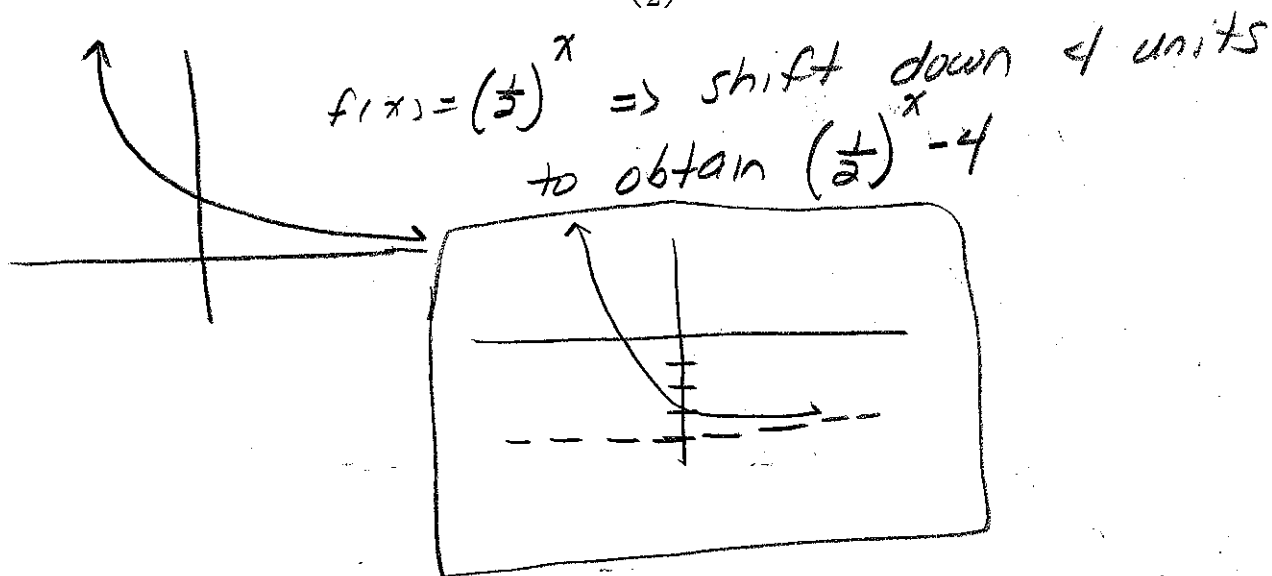 (2)
f(x) = (1/2)^x => shift down 4 units
to obtain (1/2)^x - 4